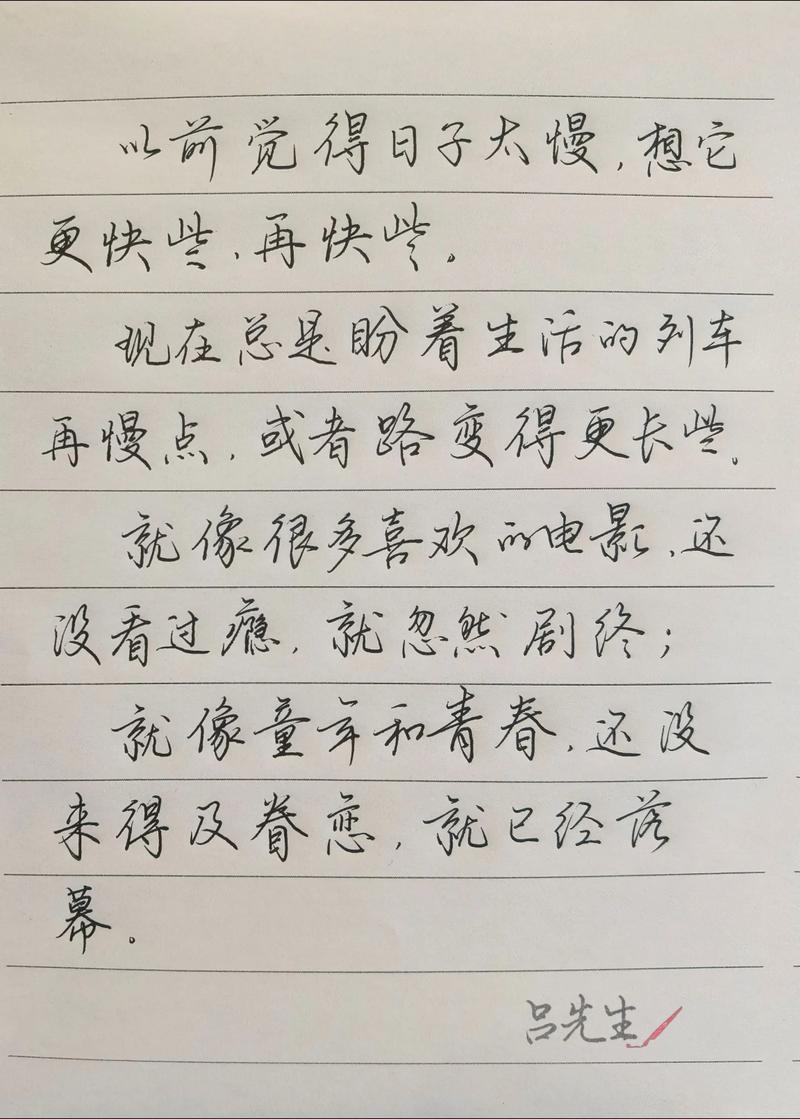 以前觉得日子太慢，想它
更快些，再快些。
现在总是盼着生活的列车
再慢点，或者路变得更长些。
就像很多喜欢的电影，还
没看过瘾，就忽然剧终；
就像童年和青春，还没
来得及眷恋，就已经落
幕。
吕先生